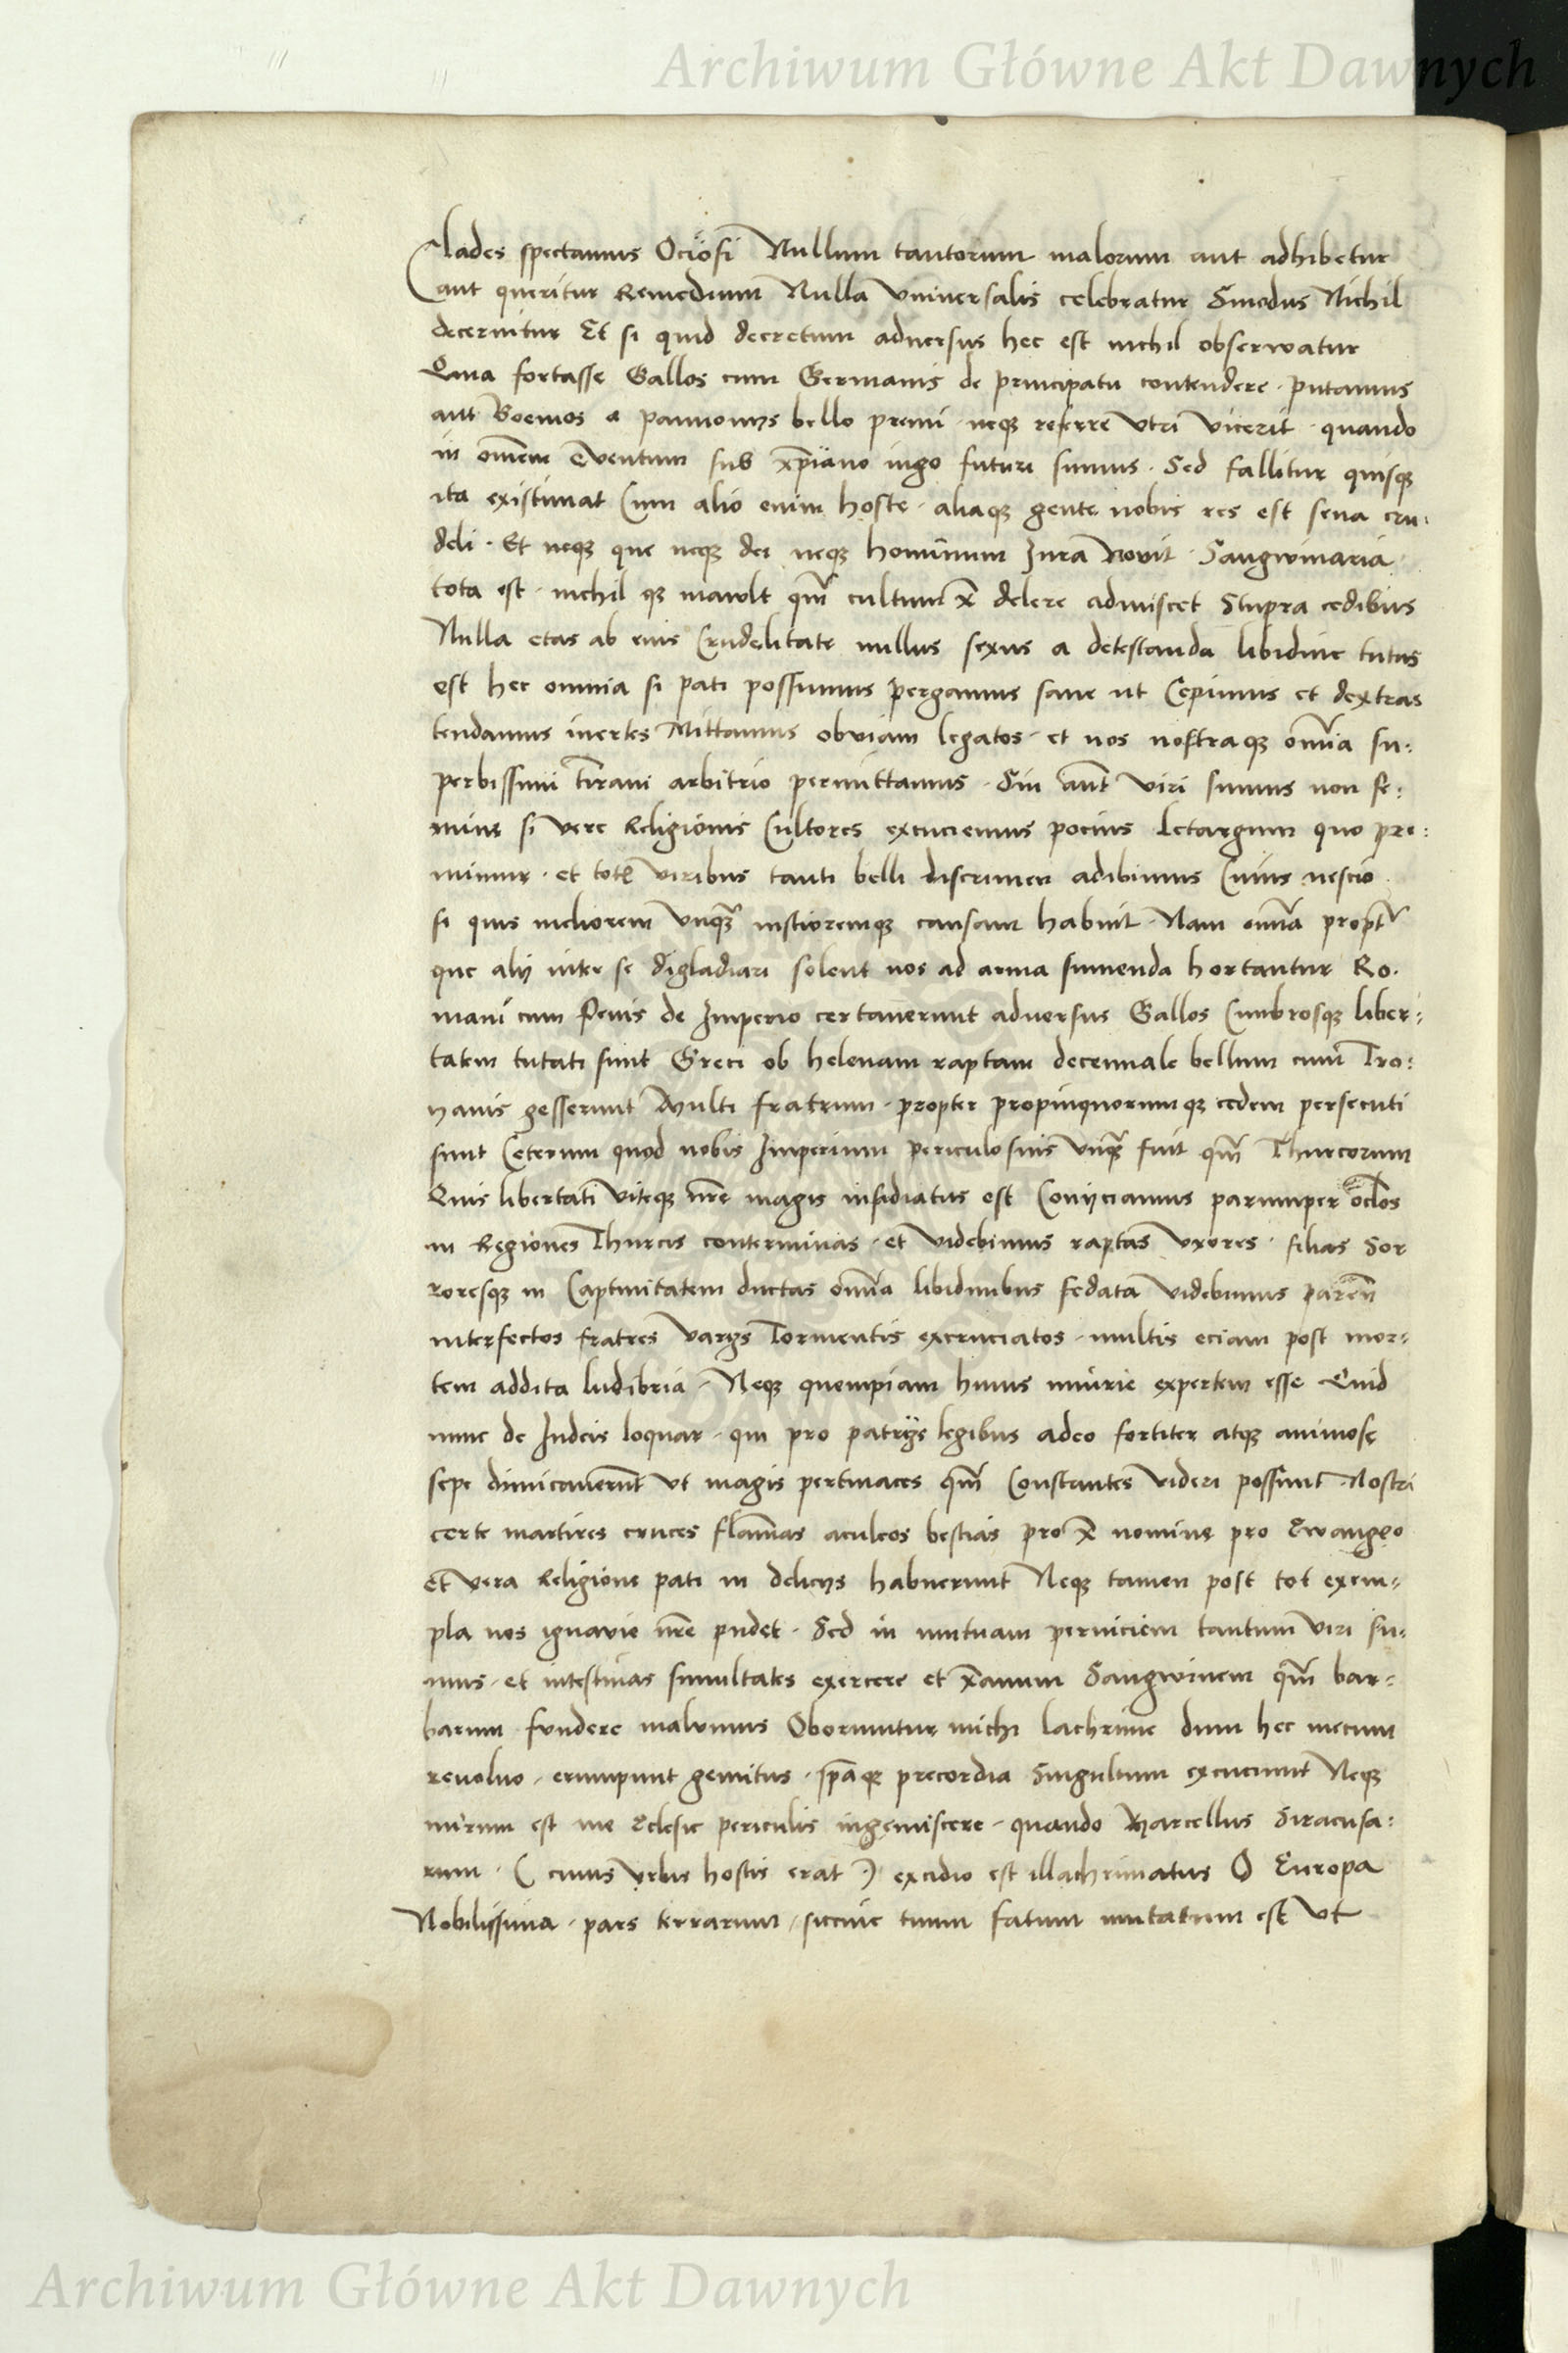 Archiwum Główne Akt Dawnych
Clades spectamus Ociosi Nullum tantorum malorum aut adhibetur
aut queritur Remedium Nulla Universalis celebratur Sinodus Nichil
decernitur Et si quid decretum adversus hec est nichil observatur
Quia fortasse Gallos cum Germanis de principatu contendere · putamus
aut Boemos a pannonijs bello premi · neqȝ referre Utri Vicerit · quando
in om̄em Eventum sub xp̄iano iugo futuri sumus · Sed fallitur quisqȝ
ita existimat Cum alio enim hoste · aliaqȝ gente nobis res est seva cru:
deli · Et neqȝ que neqȝ dei neqȝ hominum Iura Novit · Sangwinaria
tota est · nichil qȝ mavolt qm̄ cultum x̄ delere admiscet Stupra cedibus
Nulla etas ab eius Crudelitate nullus sexus a detestanda libidine tutus
est hec omnia si pati possumus pergamus sane ut Cepimus et dextras
tendamus inertes Mittamus obviam legatos · et nos nostraqȝ om̄ia su:
perbissimi tirani arbitrio permittamus · Sin aut̄ Viri sumus non fe:
mine si vere Religionis Cultores excuciemus pocius Letargum quo pre:
mimur · et tot̄ viribus tanti belli discrimen adibimus Cuius nescio
si quis meliorem Unqȝ iustioremqȝ causam habuit · Nam om̄ia propt̄
que alij inter se digladiari solent nos ad arma sumenda hortantur Ro·
mani cum Penis de Imperio certaverunt adversus Gallos Cimbrosqȝ liber:
tatem tutati sunt Greci ob helenam raptam decennale bellum cum Tro:
yanis gesserunt Multi fratrum · propter propinquorumqȝ cedem persecuti
sunt Ceterum quod nobis Imperium periculosius Unqȝ fuit qm̄ Thurcorum
Quis libertati Viteqȝ nr̄e magis insidiatus est Conijciamus parumper oc̄los
in Regiones Thurcis conterminas · et Videbimus raptas Uxores · filias Sor
roresqȝ in Captivitatem ductas om̄ia libidinibus fedata Videbimus paren̄
interfectos fratres Varijs Tormentis excruciatos · multis eciam post mor:
tem addita ludibria · Neqȝ quempiam huius iniurie expertem esse Quid
nunc de Iudeis loquar · qui pro patrijs legibus adeo fortiter atqȝ animose
sepe dimicaverunt Ut magis pertinaces qm̄ Constantes Videri possunt Nostri
certe martires cruces flam̄as aculeos bestias pro x̄ nomine pro Ewangeo
et vera Religione pati in delicijs habuerunt Neqȝ tamen post tot exem:
pla nos ignavie nr̄e pudet · Sed in mutuam perniciem tantum viri su:
mus · et intestinas simultates exercere et x̄anum Sangwinem qm̄ bar:
barum fundere malumus Oboriuntur michi lachrime dum hec mecum
revoluo · erumpunt gemitus · ip̄aqȝ precordia Singultum excuciunt Neqȝ
mirum est me Eclesie periculis ingemiscere · quando Marcellus Siracusa:
rum · ( cuius Urbis hostis erat ) excidio est illachrimatus O Europa
Nobilissima · pars terrarum · siccine tuum fatum mutatum est Ut
Archiwum Główne Akt Dawnych